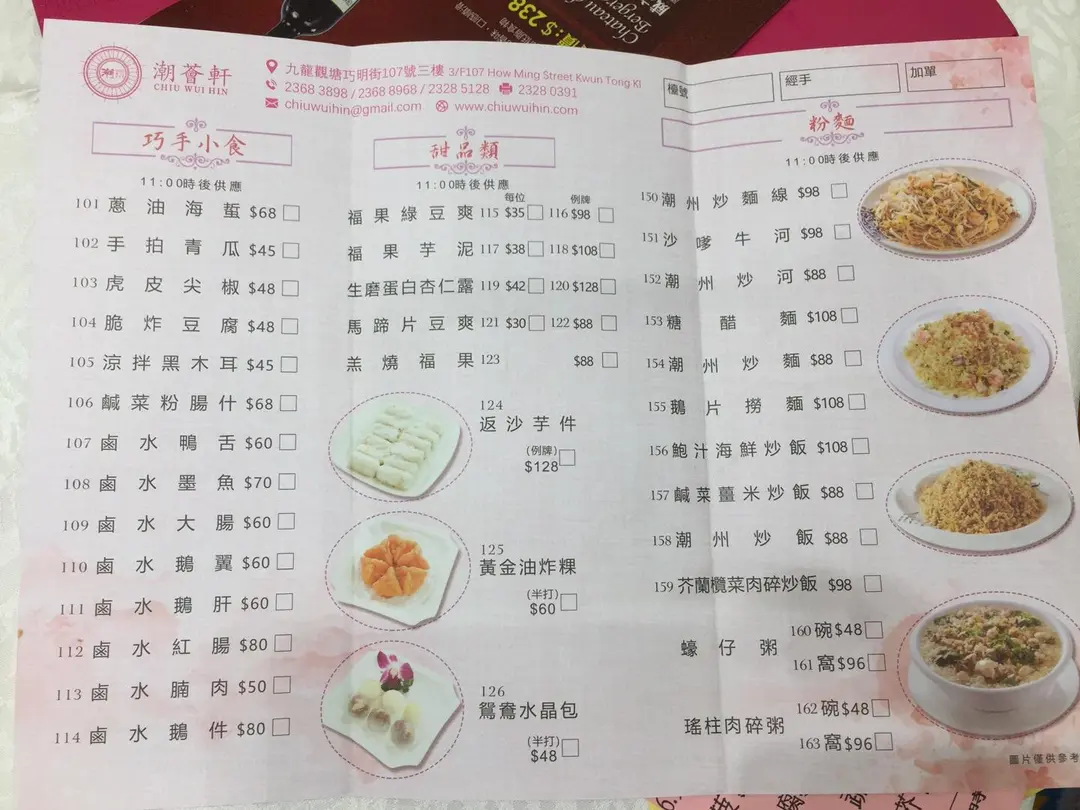 潮薈軒
CHIU WUI HIN
九龍觀塘巧明街107號三樓 3/F107 How Ming Street Kwun Tong Kl
2368 3898 / 2368 8968 / 2328 5128 2328 0391
chiuwuihin@gmail.com www.chiuwuihin.com
檯號
經手
加單
巧手小食
11:00時後供應
101 蔥油海蜇 $68
102 手拍青瓜 $45
103 虎皮尖椒 $48
104 脆炸豆腐 $48
105 涼拌黑木耳 $45
106 鹹菜粉腸什 $68
107 鹵水鴨舌 $60
108 鹵水墨魚 $70
109 鹵水大腸 $60
110 鹵水鵝翼 $60
111 鹵水鵝肝 $60
112 鹵水紅腸 $80
113 鹵水腩肉 $50
114 鹵水鵝件 $80
甜品類
11:00時後供應
每位 例牌
福果綠豆爽 115 $35 116 $98
福果芋泥 117 $38 118 $108
生磨蛋白杏仁露 119 $42 120 $128
馬蹄片豆爽 121 $30 122 $88
羔燒福果 123 $88
124
返沙芋件
(例牌)
$128
125
黃金油炸粿
(半打)
$60
126
鴛鴦水晶包
(半打)
$48
粉麵
11:00時後供應
150 潮州炒麵線 $98
151 沙嗲牛河 $98
152 潮州炒河 $88
153 糖醋麵 $108
154 潮州炒麵 $88
155 鵝片撈麵 $108
156 鮑汁海鮮炒飯 $108
157 鹹菜薑米炒飯 $88
158 潮州炒飯 $88
159 芥蘭欖菜肉碎炒飯 $98
蠔仔粥
160 碗 $48
161 窩 $96
瑤柱肉碎粥
162 碗 $48
163 窩 $96
圖片僅供參考
Chateau
$238